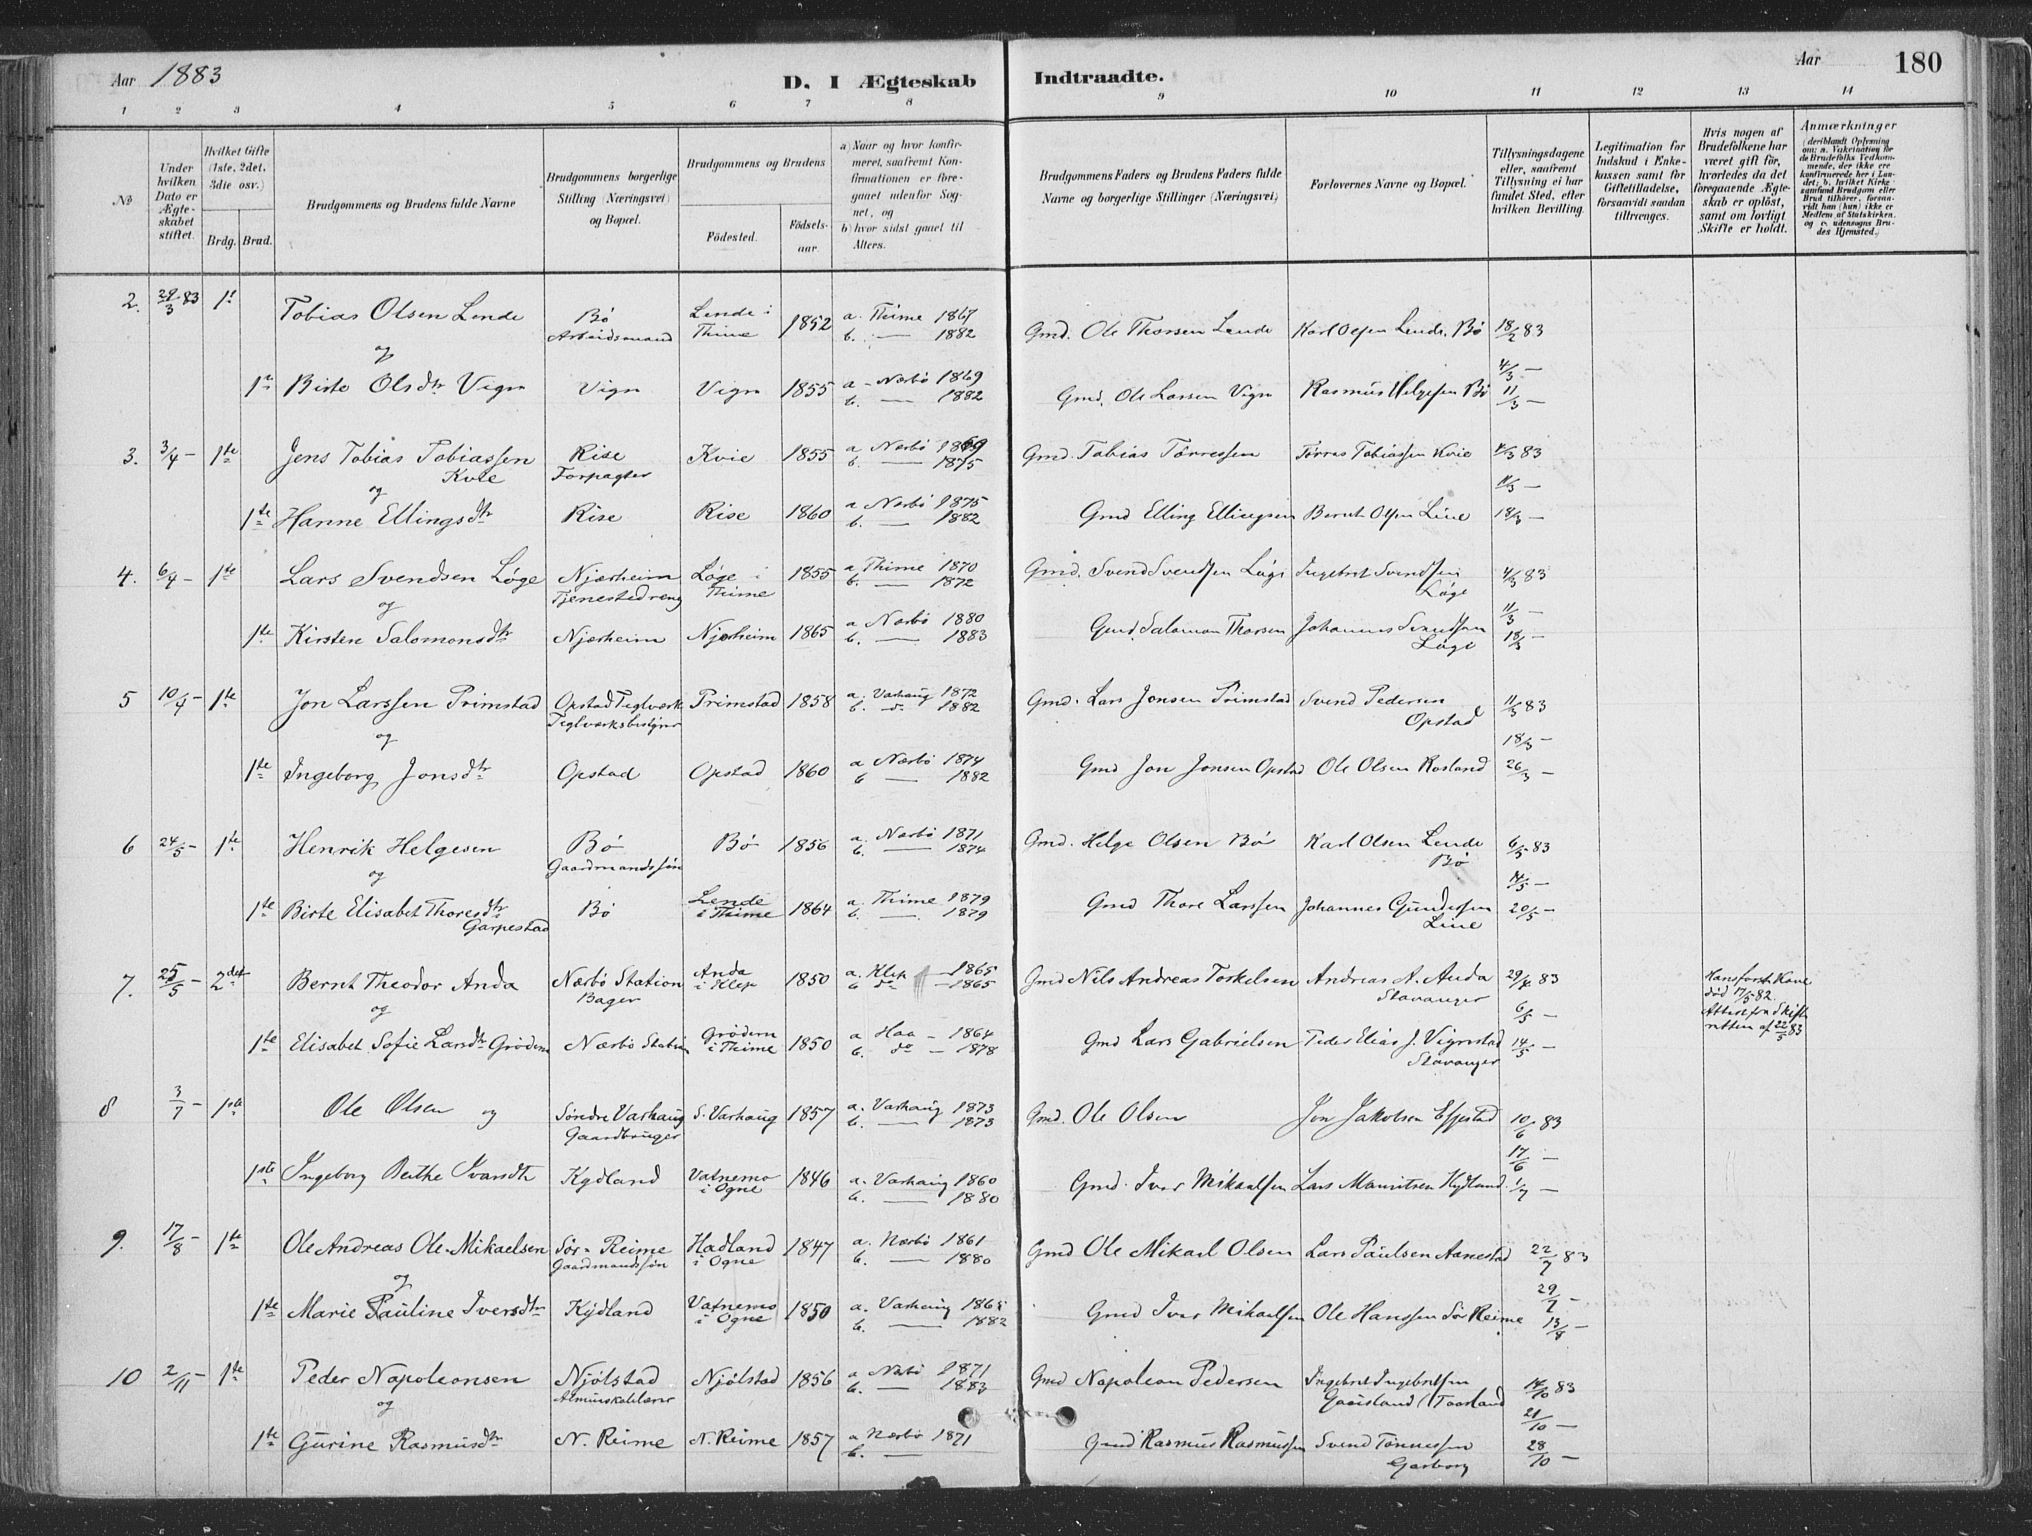 Aar 1883
D. I Ægteskab Indtraadte.
Aar
180
1 2 3 4 5 6 7 8 9 10 11 12 13 14
№
Under hvilken Dato er Ægteskabet stiftet.
Hvilket Gifte (1ste, 2det, 3die osv.)
Brdg. Brud.
Brudgommens og Brudens fulde Navne
Brudgommens borgerlige Stilling (Næringsvei) og Bopæl.
Brudgommens og Brudens
Fødested. Fødselsaar.
a) Naar og hvor konfirmeret, saafremt Konfirmationen er foregaaet udenfor Sognet, og
b) hvor sidst gaaet til Alters.
Brudgommens Faders og Brudens Faders fulde Navne og borgerlige Stillinger (Næringsvei)
Forlovernes Navne og Bopæl.
Tillysningsdagene eller, saafremt Tillysning ei har fundet Sted, efter hvilken Bevilling.
Legitimation for Indskud i Enkekassen samt for Giftetilladelse, forsaavidt saadan tiltrænges.
Hvis nogen af Brudefolkene har været gift før, hvorledes da det foregaaende Ægteskab er opløst, samt om lovligt Skifte er holdt.
Anmærkninger (deriblandt Oplysning om: a. Vakcination for de Brudefolks Vedkommende, der ikke ere konfirmerede her i Landet; b. hvilket Kirkesamfund Brudgom eller Brud tilhører, forsaavidt han (hun) ikke er Medlem af Statskirken, og c. udensogns Brudes Hjemsted.)
2. 29/3 83 1ste Tobias Olsen Lende Bø Lende i 1852 a. Thime 1867 Gmd. Ole Thorsen Lende Karl Olsen Lende, Bø 18/2 83
og Arbeidsmand Thime b. — 1882
4/3 —
1te Birte Olsdtr Vign Vign Vign 1855 a — Nærbø 1869 Gmd. Ole Larsen Vign Rasmus Helgesen Bø 11/3 —
b. — 1882
3. 3/4 — 1te Jens Tobias Tobiassen Rise Kvie 1855 a Nærbø 1869 Gmd. Tobias Tørressen Tørres Tobiassen Kvie 4/3 83
Kvie Forpagter b. — 1875
og 11/3 —
1te Hanne Ellingsdtr Rise Rise 1860 a Nærbø 1875 Gmd Elling Ellingsen Bernt Olsen Line 18/3 —
b. — 1882
4. 6/4 — 1te Lars Svendsen Løge Njærheim Løge i 1855 a Thime 1870 Gmd. Svend Svendsen Løge Ingebret Svendsen 4/3 83
og Tjenestedreng Thime b. — 1872 Løge
11/3 —
1te Kirsten Salomonsdtr Njærheim Njærheim 1865 a Nærbø 1880 Gmd. Salomon Thorsen Johannes Svendsen 18/3 —
b. — 1883 Løge
5 10/4 — 1te Jon Larssen Primstad Opstad Teglværk Primstad 1858 a. Varhaug 1872 Gmd. Lars Jonsen Primstad Svend Pedersen 11/3 83
og Teglværksbestyrer b. d. 1882 Opstad
18/3 —
1te Ingeborg Jonsdtr Opstad Opstad 1860 a Nærbø 1874 Gmd Jon Jonsen Opstad Ole Olsen Rosland 26/3 —
b — 1882
6 24/5 — 1te Henrik Helgesen Bø Bø 1856 a. Nærbø 1871 Gmd. Helge Olsen Bø Karl Olsen Lende 6/5 83
og Gaardmandssøn b. — 1874 Bø
14/5 —
1te Birte Elisabet Thoresdtr Bø Lende 1864 a. Thime 1879 Gmd Thore Larssen Johannes Gundersen 20/5 —
Garpestad i Thime b. — 1879 Line
7. 25/5 — 2det Bernt Theodor Anda Nærbø Station Anda 1850 a. Klep — 1865 Gmd Nils Andreas Torkelsen Andreas A. Anda 29/4 83 Hans første Kone
og Bager i Klep b do — 1865 Stavanger død 17/5 82.
6/5 — Attest fra Skifte
1te Elisabet Sofie Larsdtr Grødem Nærbø Station Grødem 1850 a Haa — 1864 Gmd Lars Gabrielsen Peder Elias J. Vigrestad 14/5 — retten af 22/5 83
i Thime b. do — 1878 Stavanger
8 3/7 — 1ste Ole Olsen og Søndre Varhaug S. Varhaug 1857 a. Varhaug 1873 Gmd. Ole Olsen Jon Jakobsen 10/6 83
Gaardbruger b. — 1873
17/6 —
1ste Ingeborg Berthe Ivarsdtr Kydland Vatnemo 1846 a. Varhaug 1860 Gmd. Ivar Mikaelsen Lars Mauritsen Kydland 1/7 —
i Ogne b. — 1880
9. 17/8 — 1te Ole Andreas Ole-Mikaelsen Sør-Reime Hadland 1847 a. Nærbø 1861 Gmd Ole Mikael Olsen Lars Paulsen Aanestad 22/7 83
og Gaardmandssøn i Ogne b. — 1880
29/7 —
1te Marie Pauline Iversdtr Kydland Vatnemo 1850 a. Varhaug 1865 Gmd Ivar Mikaelsen Ole Hanssen Sør Reime 13/8 —
i Ogne b. — 1882
10 2/11 — 1te Peder Napoleonsen Njølstad Njølstad 1856 a Nærbø 1871 Gmd Napoleon Pedersen Ingebret Ingebretsen 14/10 83
og Almueskolelærer b. — 1883 Gausland (Taarland
21/10 —
1te Gurine Rasmusdtr N. Reime N. Reime 1857 a Nærbø 1871 Gmd Rasmus Rasmussen Svend Tønnessen 28/10 —
b. — Garborg